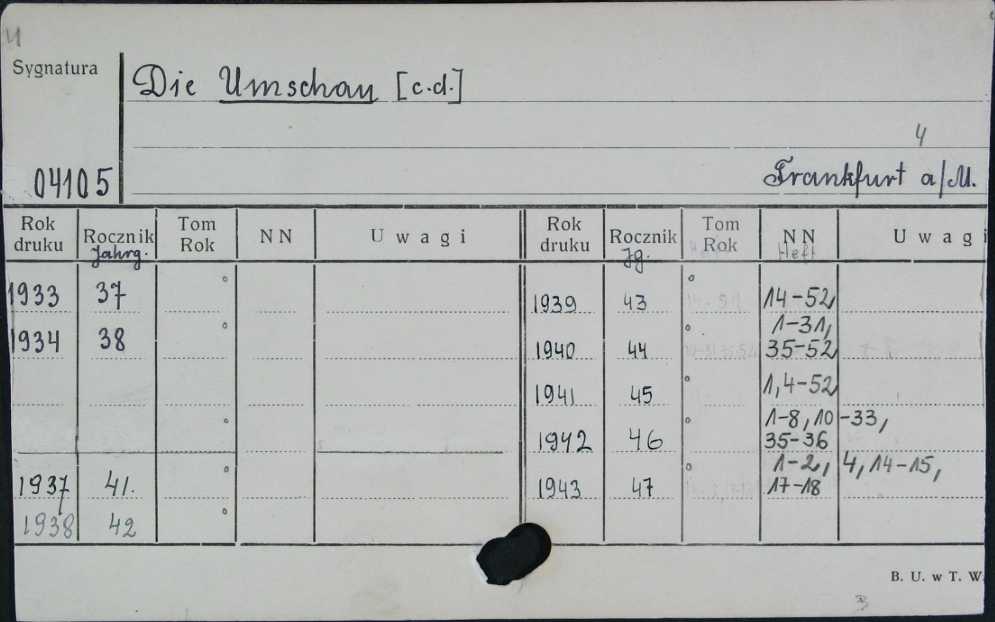 4
Sygnatura
Die Umschau [c.d.]
4
04105
Frankfurt a/M.
Rok druku Rocznik Tom Rok NN Uwagi Rok druku Rocznik Tom Rok NN Uwagi
Jahrg. Jg. Heft
1933 37 1939 43 14-52
1934 38 1940 44 1-31, 35-52
1941 45 1,4-52
1942 46 1-8, 10-33, 35-36
1937 41. 1943 47 1-2, 4, 14-15, 17-18
1938 42
B. U. w T. W.